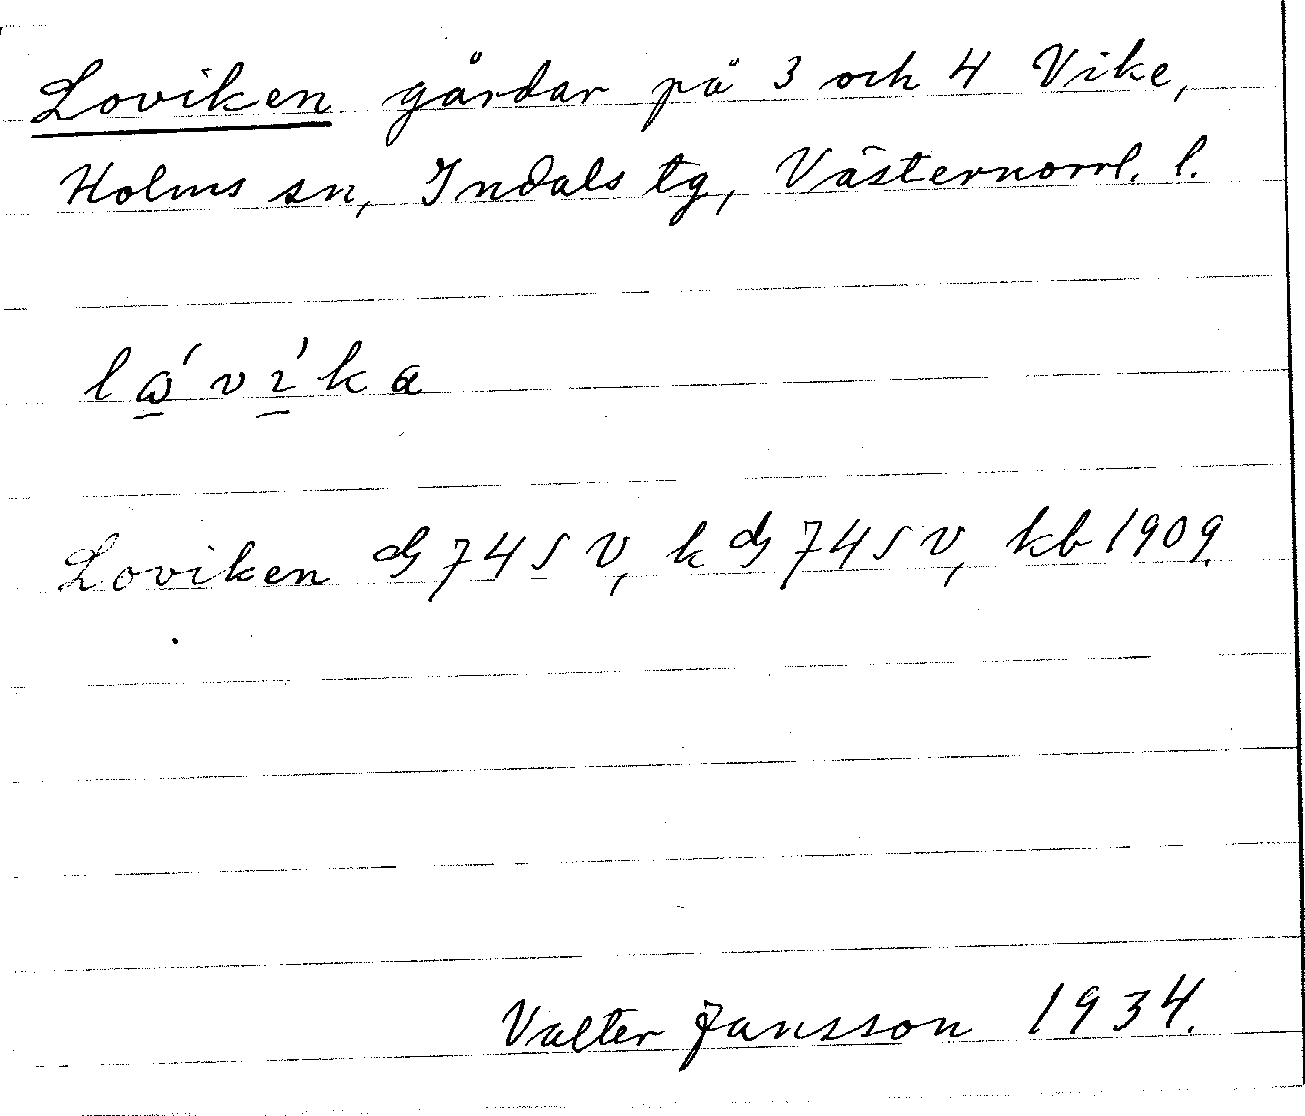 Loviken gårdar på 3 och 4 Vike,
Holms sn, Indals tg, Västernorrl. l.
lǻví̱ka
Loviken G 74 S V, k G 74 S V, kb 1909.
Valter Jansson 1934.